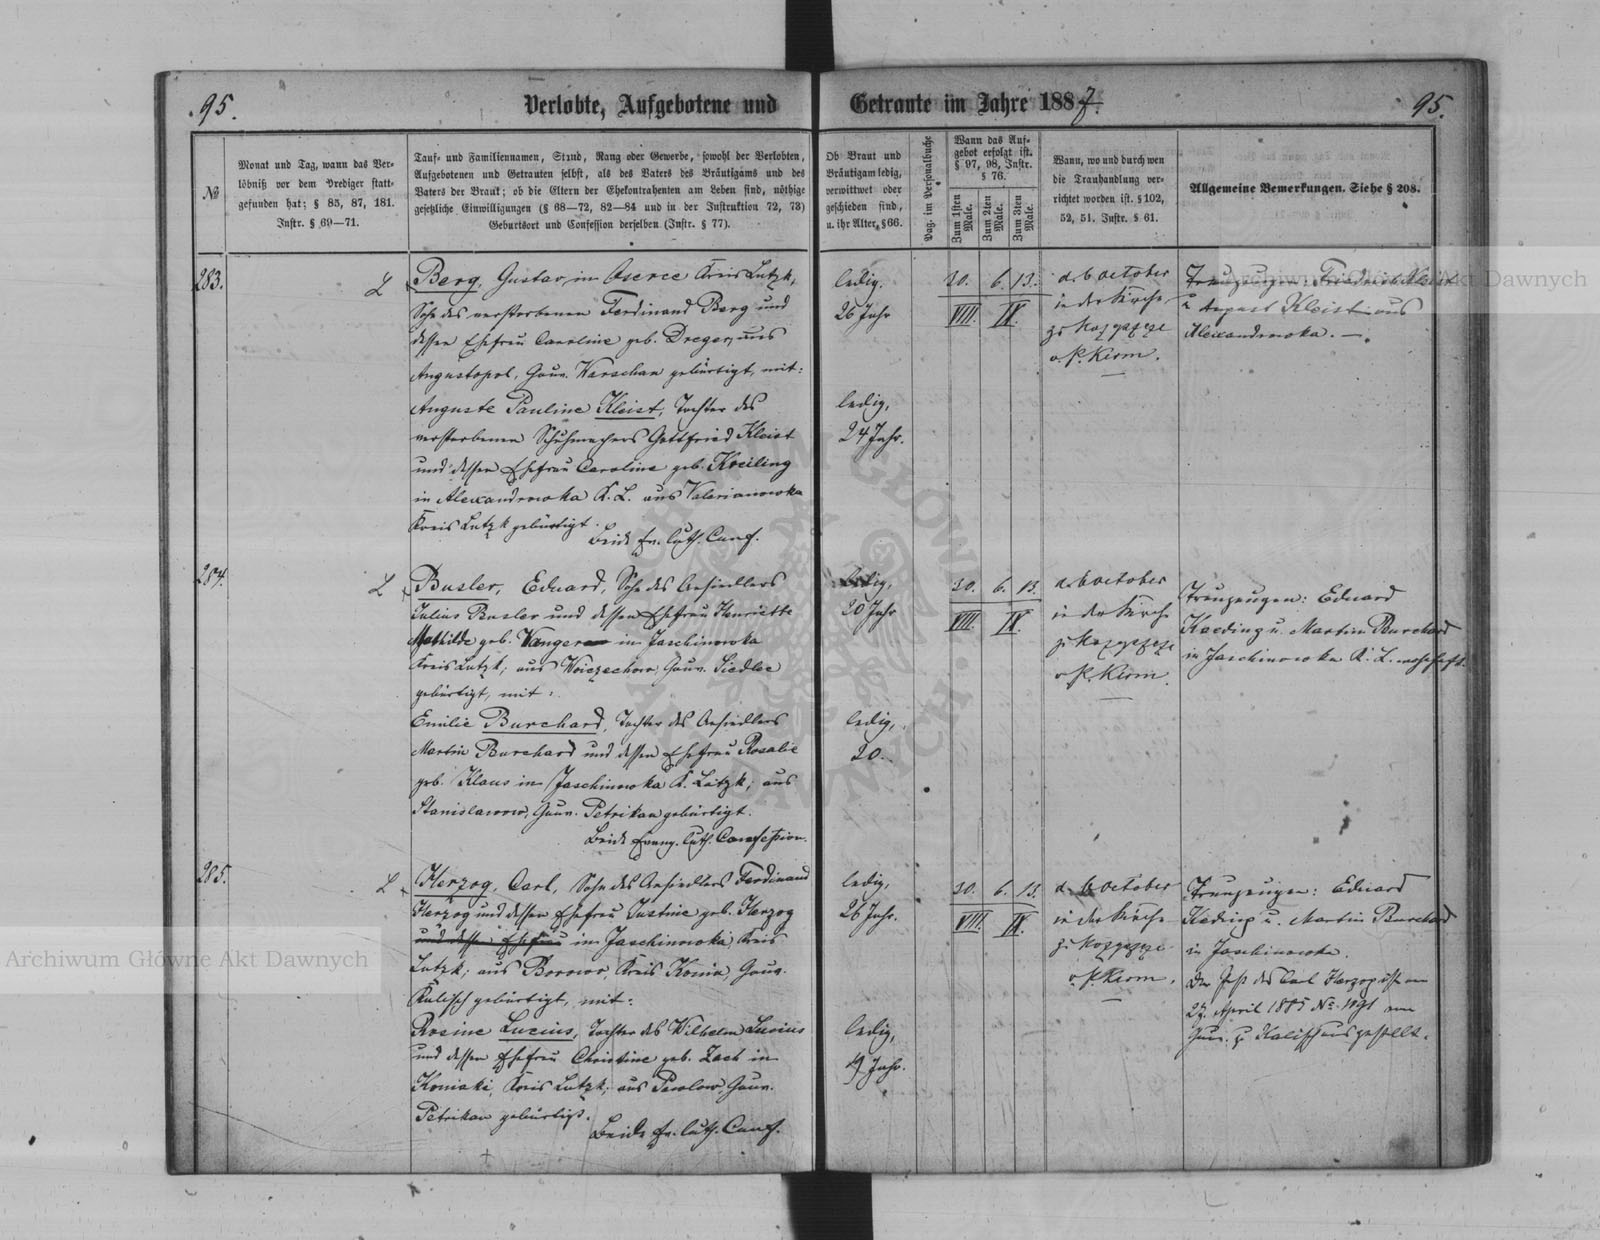 95.
Verlobte, Aufgebotene und
Getraute im Jahre 1887.
95.
№
Monat und Tag, wann das Ver-
löbniß vor dem Prediger statt-
gefunden hat; § 85, 87, 181.
Instr. § 69—71.
Tauf- und Familiennamen, Stand, Rang oder Gewerbe, sowohl der Verlobten,
Aufgebotenen und Getrauten selbst, als des Vaters des Bräutigams und des
Vaters der Braut; ob die Eltern der Ehekontrahenten am Leben sind, nöthige
gesetzliche Einwilligungen (§ 68—72, 82—84 und in der Instruktion 72, 73)
Geburtsort und Confession derselben (Instr. § 77).
Ob Braut und
Bräutigam ledig,
verwittwet oder
geschieden sind,
u. ihr Alter, § 66.
Pag. im Personalbuche
Wann das Auf-
gebot erfolgt ist.
§ 97, 98, Instr.
§ 76.
Zum 1sten Male.
Zum 2ten Male.
Zum 3ten Male.
Wann, wo und durch wen
die Trauhandlung ver-
richtet worden ist. § 102,
52, 51. Instr. § 61.
Allgemeine Bemerkungen. Siehe § 208.
283.
L
Berg, Gustav in Kreis Lutzk,
Sohn des verstorbenen Ferdinand Berg und
dessen Ehefrau Caroline geb. Dreger, aus
Augustopol, Gouv. Warschau gebürtigt, mit:
Auguste Pauline Kleist, Tochter des
verstorbenen Schuhmachers Gottfried Kleist
und dessen Ehefrau Caroline geb. Kreiling
in Alexandrowka K. L. aus Valerianowka
Kreis Lutzk gebürtigt.
Beide Ev. luth. Conf.
ledig,
26 Jahr
ledig,
24 Jahr.
30. 6. 13.
VIII. IX.
d. 6 October
in der Kirche
zu
v. P. Kerm.
Trauzeugen: Friedrich Kleist
u. August Kleist aus
Alexandrowka. —.
284.
L
Busler, Eduard, Sohn des Ansiedlers
Julius Busler und dessen Ehefrau Henriette
Mathilde geb. Wanger in Jaschinowka
Kreis Lutzk, aus Woiczechow, Gouv. Siedlce
gebürtigt, mit:
Emilie Burchard, Tochter des Ansiedlers
Martin Burchard und dessen Ehefrau Rosalie
geb. Klaus in Jaschinowka K. Lutzk; aus
Stanislawow, Gouv. Petrikau gebürtigt.
Beide Evang. luth. Confession.
ledig,
20 Jahr
ledig,
20.
30. 6. 13.
VIII. IX.
d. 6 October
in der Kirche
zu
v. P. Kerm.
Trauzeugen: Eduard
Keeding u. Martin Burchard
in Jaschinowka K. L. wohnhaft.
285.
L
Herzog, Carl, Sohn des Ansiedlers Ferdinand
Herzog und dessen Ehefrau Justine geb. Herzog
und dessen Ehefrau in Jaschinowka, Kreis
Lutzk; aus Borowo, Kreis Konin, Gouv.
Kalisch gebürtigt, mit:
Rosine Lucius, Tochter des Wilhelm Lucius
und dessen Ehefrau Christine geb. Zach in
Koniaki, Kreis Lutzk; aus Gouv.
Petrikau gebürtigt.
Beide Ev. luth. Conf.
ledig,
26 Jahr.
ledig,
19 Jahr.
30. 6. 13.
VIII. IX.
d. 6 October
in der Kirche
zu
v. P. Kerm.
Trauzeugen: Eduard
Keding u. Martin Burchard
in Jaschinowka.
Der Paß des Carl Herzog ist am
27. April 1885 No. 1191 vom
Gouv. z. Kalisch ausgestellt.
Archiwum Główne Akt Dawnych
Archiwum Główne Akt Dawnych